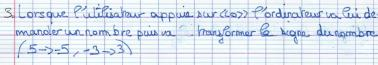 3. Lorsque l'utilisateur appuis sur <<co>> l'ordinateur va lui de
mander un nombre puis va transformer le signe du nombre
(5-->-5, -3-->3)